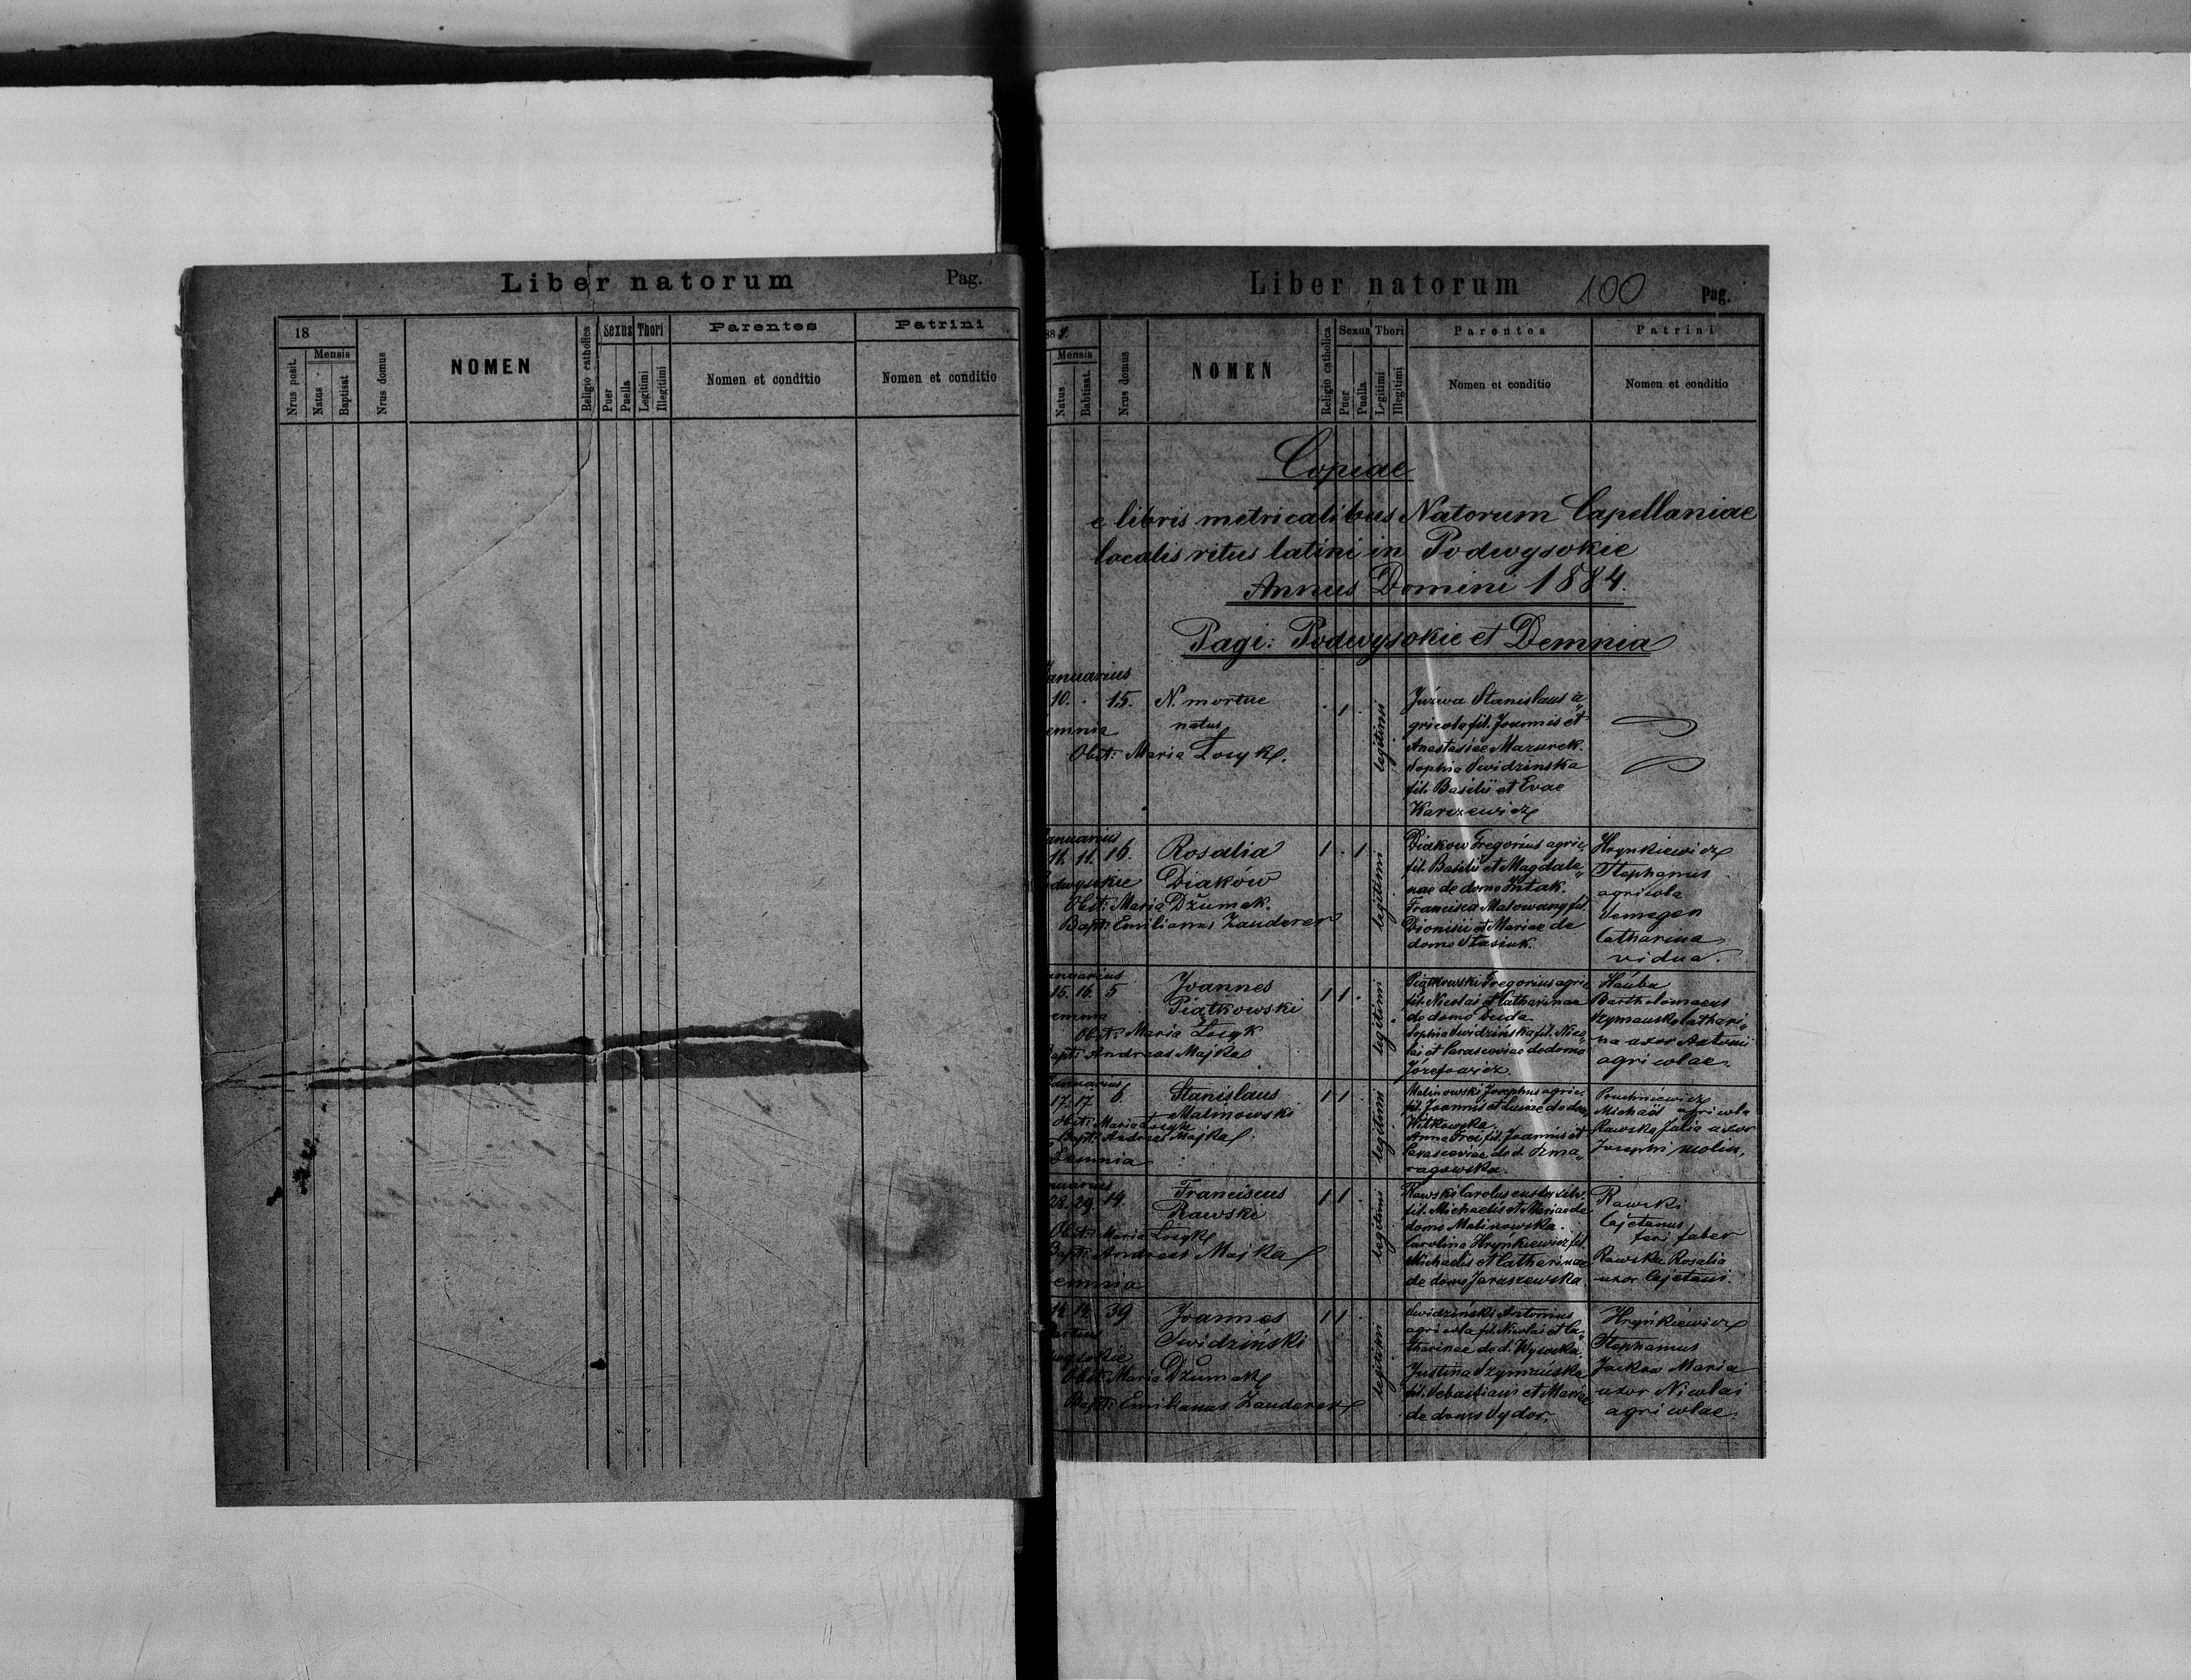 Liber natorum Pag.
18
Mensis
Nrus posit.
Natus
Baptisat
Nrus domus
NOMEN
Religio catholica
Sexus
Puer
Puella
Thori
Legitimi
Illegitimi
Parentes
Nomen et conditio
Patrini
Nomen et conditio
Liber natorum 100 Pag.
884.
Mensis
Natus
Babtisat.
Nrus domus
NOMEN
Religio catholica
Sexus
Puer
Puella
Thori
Legitimi
Illegitimi
Parentes
Nomen et conditio
Patrini
Nomen et conditio
Copiae
e libris metricalibus Natorum Capellaniae
localis ritus latini in Podwysokie
Annus Domini 1884.
Pagi: Podwysokie et Demnia
anuarius
10. . 15. N. mortue
natus
emnia
Obst: Maria Łosyk.
. 1 .
legitimi
Juzwa Stanislaus a„
gricola fil. Joannis et
Anastasiae Mazurek.
Sophia Swidzinska
fil. Basilii et Evae
Karczewicz
anuarius
11. 11. 16. Rosalia
dwysokie Diaków
Obst: Maria Dżumak.
Bapt: Emilianus Zauderer
1 . 1
legitimi
Diakow Gregorius agric.
fil. Basilii et Magdale„
nae de domo
Francisca Malowany fil.
Dionisii et Mariae de
domo Stasiuk.
Hrynkiewicz
Stephanus
agricola
Semegen
Catharina
vidua.
anuarius
15. 16. 5 Joannes
Piątkowski
emnia
Obst: Maria Łosyk
apt: Andreas Majka
1 1 .
legitimi
Piątkowski Gregorius agric
fil. Nicolai et Catharinae
de domo Duda
Sophia Swidzińska fil. Nico„
lai et Parasceviae de domo
Józefowicz.
Hauba
Bartholomaeus
Szymanska Cathari„
na uxor Antonii
agricolae.
Januarius
17. 17 6 Stanislaus
Malinowski
Obst: Maria Łosyk
Bapt: Andreas Majka
Demnia
1 1 .
legitimi
Malinowski Josephus agric.
fil. Joannis et Luciae de dom,
Witkowska.
Anna Frei fil. Joannis et
Parasceviae de d. Szma„
ragowska.
Michael agricola
Rawska Julia uxor
Josephi molin.
nuarius
28. 29. 14. Franciscus
Rawski
Obst: Maria Łosyk
Bapt: Andreas Majka
emnia
1 1 .
legitimi
Rawski Carolus
fil. Michaelis et Mariae de
domo Malinowska.
Carolina Hryńkiewicz fil.
Michaelis et Catharinae
de domo Jaruszewska.
Rawski
Cajetanus
feri faber
Rawska Rosalia
uxor Cajetani.
14 14 39 Joannes
Swidziński
artius
wysokie
Obst: Maria Dżumak
Bapt: Emilianus Zauderer
1 1 .
legitimi
Swidziński Antonius
agricola fil. Nicolai et Ca„
tharinae de d. Wysocka.
Justina Szymańska
fil. Sebastiani et Mariae
de domo Sydor.
Hryńkiewicz
Stephanus
Jackow Maria
uxor Nicolai
agricolae.